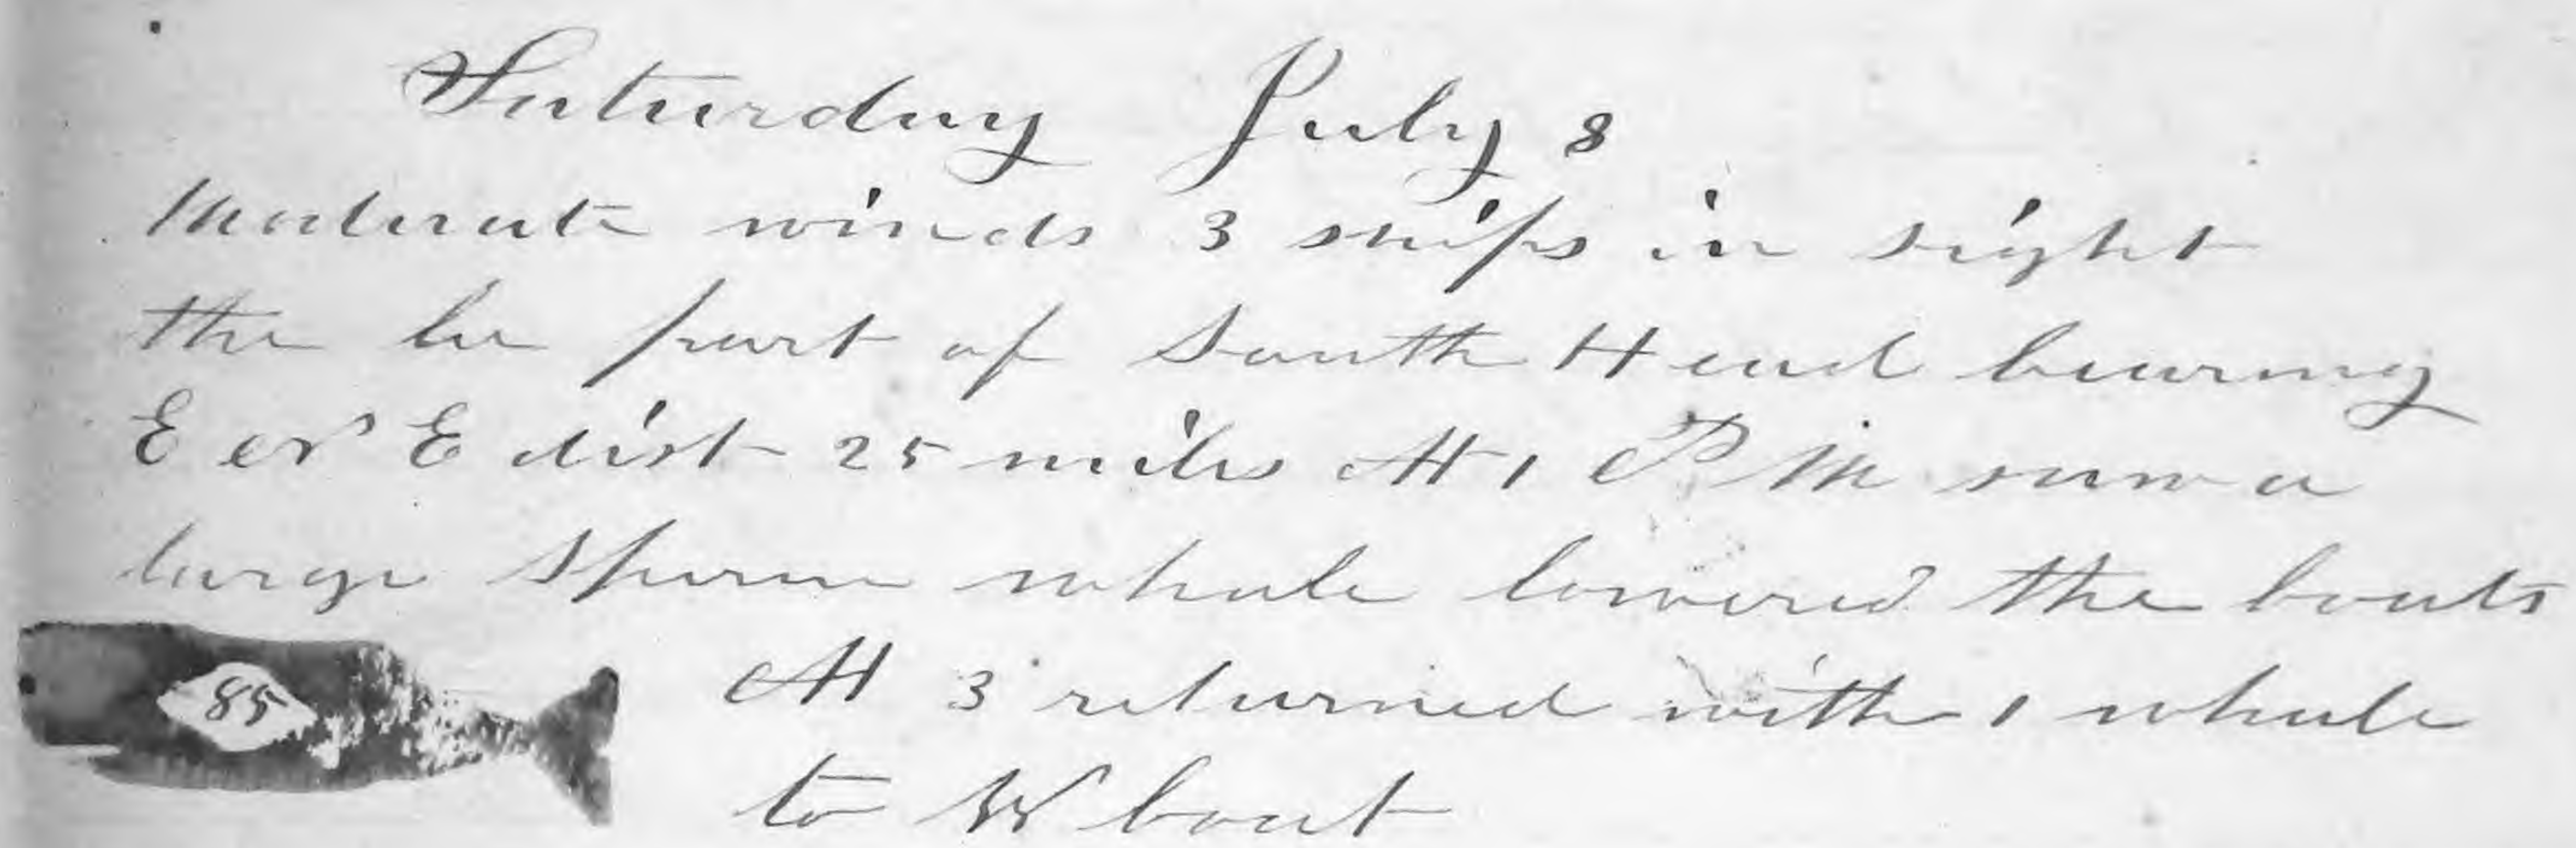 Saturday July 8
Moderate winds 3 ships in sight
the part of South Head bearing
E N E dist 25 miles At 1 P M saw a
large Sperm whale lowered the boats
85
At 3 returned with 1 whale
to W boat